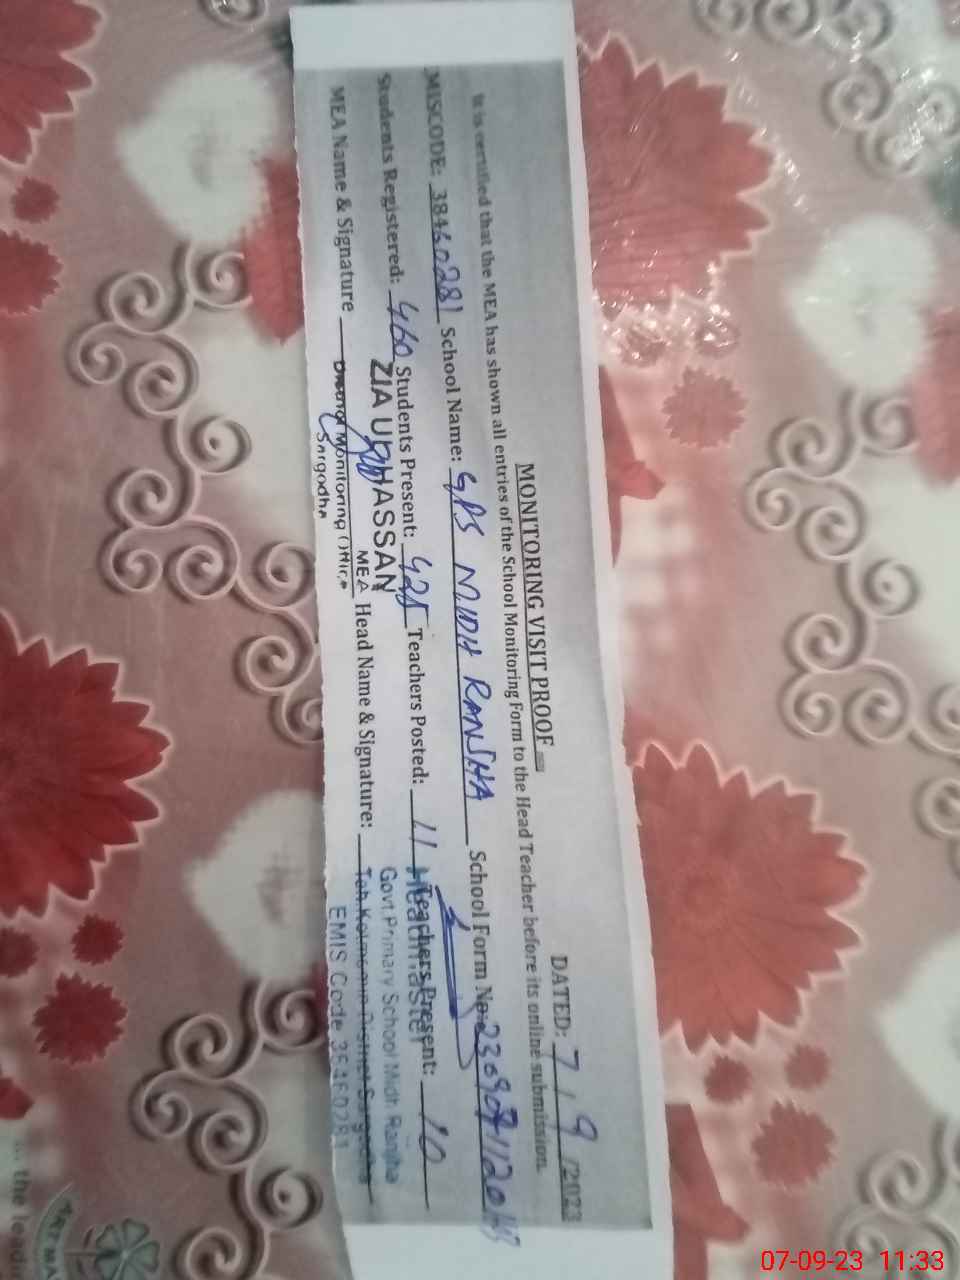 MONITORING VISIT PROOF
DATED: 7/9/2023
It is certified that the MEA has shown all entries of the School Monitoring Form to the Head Teacher before its online submission.
MISCODE: 38460281 School Name: GPS MIDH RANJHA School Form No:
Students Registered: 460 Students Present: 425 Teachers Posted: 11 Teachers Present: 10
MEA Name & Signature Head Name & Signature:
ZIA UL HASSAN
MEA
District Monitoring Office
Sargodha
Headmaster
Govt Primary School Midh Ranjha
Teh. Kotmomin District Sargodha
EMIS Code 38460281
... the lead
07-09-23 11:33